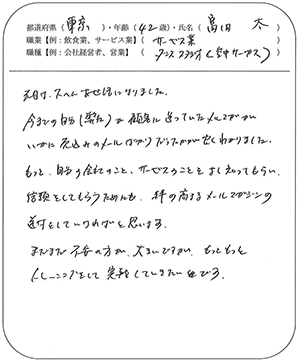 都道府県（東京）・年齢（42歳）・氏名（高田 太）
職業【例：飲食業、サービス業】（サービス業）
職種【例：会社経営者、営業】（ダンススタジオ（ ）
先日は、大変お世話になりました。
今までの自分（弊社）が顧客に送っていたメルマガが
いかに売込みのメールばかりだったかがよくわかりました。
もっと、自分の会社のこと、サービスのことをよく知ってもらい、
信頼をしてもらうためにも、絆の高まるメールマガジンの
送付をしていければと思います。
まだまだ不安の方が、大きいですが、もっともっと
トレーニングをして実践をしていきたいです。